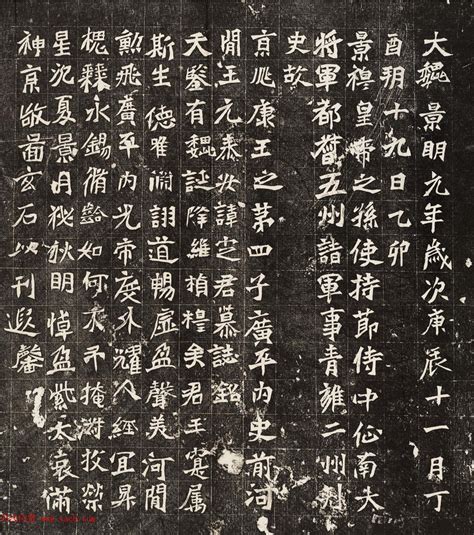 大魏景明元年歲次庚辰十一月丁
酉朔十九日乙卯
景穆皇帝之孫使持節侍中征南大
將軍都督五州諸軍事青雍二州刺
史故
京兆康王之第四子廣平內史前河
間王元泰安諱定君墓誌銘
天鑒有魏誕降維楨穆矣君王寔屬
斯生德唯淵詡道暢虛盈聲美河間
勳飛廣平內光帝度外耀人經宜昇
槐棘永錫脩齡如何不掩收榮
星沉夏景月秘秋明悼盈紫太哀滿
神京敬圖玄石以刊遐馨